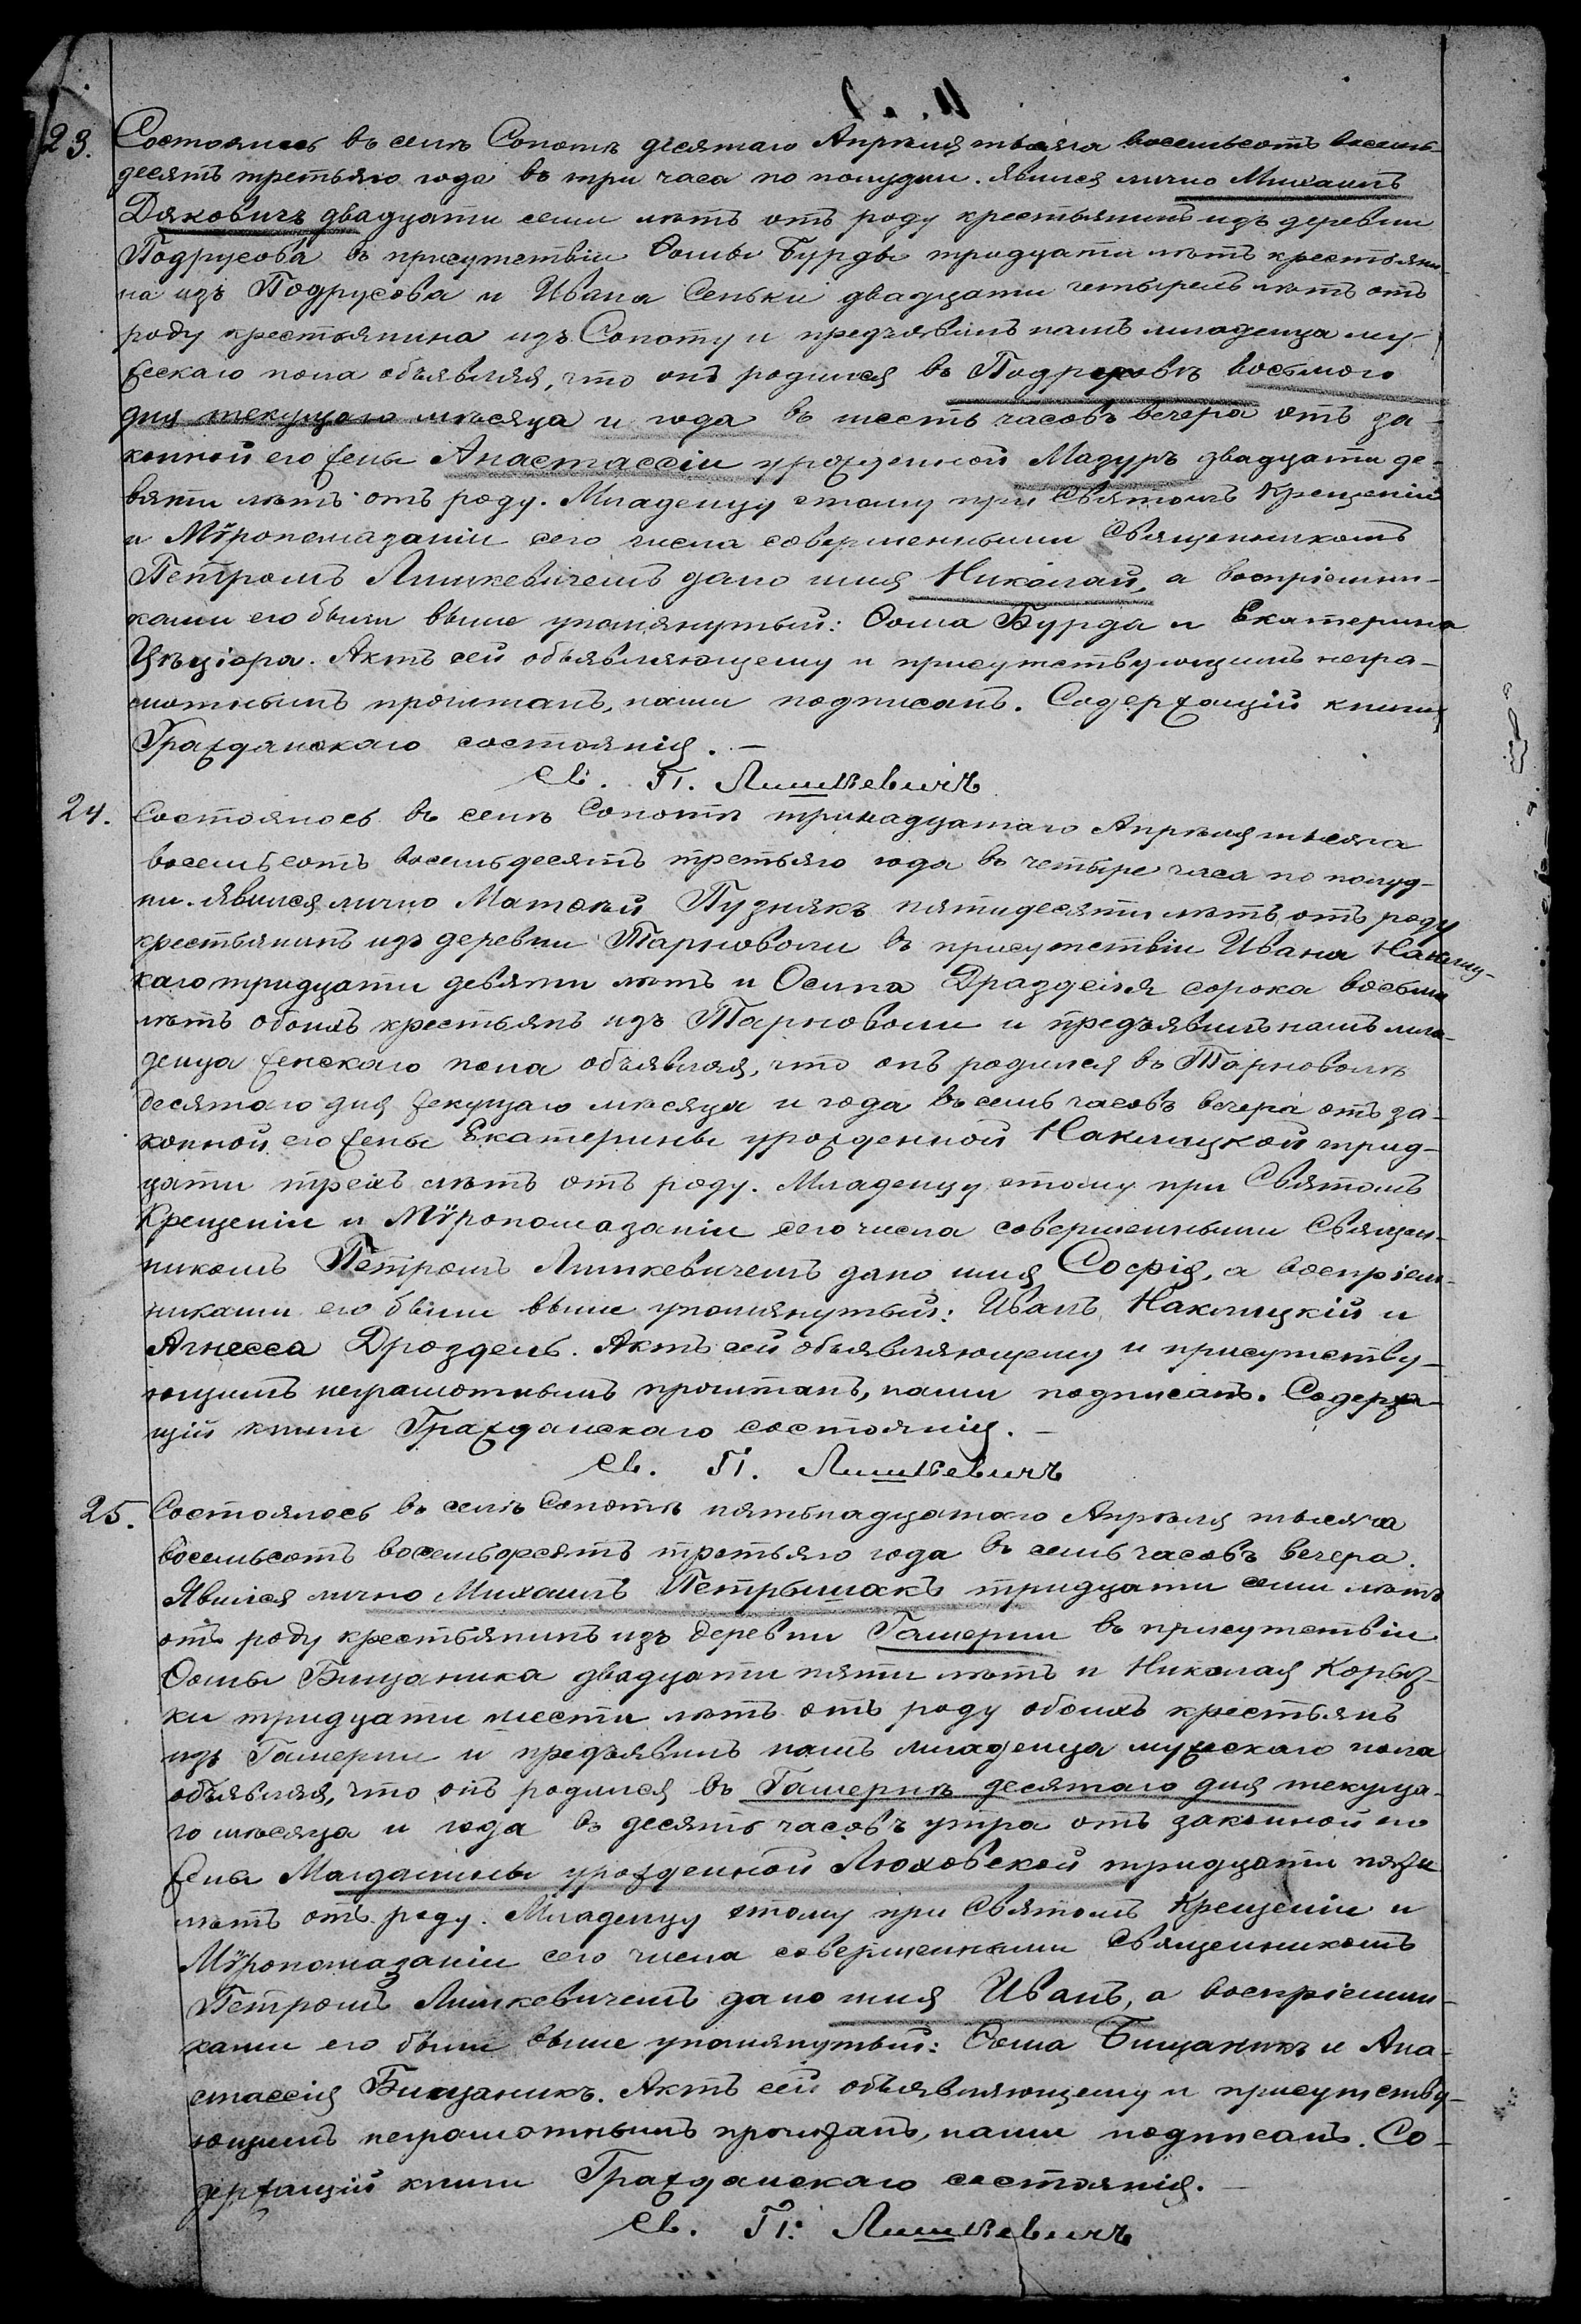 23. Состоялось въ селѣ Сопотѣ десятаго Апрѣля тысяча восемьсотъ восемь-
десятъ третьяго года въ три часа по полудни. Явился лично Михаилъ
Дяковичъ двадцати семи лѣтъ отъ роду крестьянинъ изъ деревни
Подрусова въ присутствіи Ѳомы Бурды тридцати лѣтъ крестьяни-
на изъ Подрусова и Ивана Сеньки двадцати четырехъ лѣтъ отъ
роду крестьянина изъ Сопоту и предъявилъ намъ младенца му-
жескаго пола объявляя, что онъ родился въ Подрусовѣ восьмого
дня текущаго мѣсяца и года въ шесть часовъ вечера отъ за-
конной его жены Анастассіи урожденной Мазуръ двадцати де-
вяти лѣтъ отъ роду. Младенцу этому при Святомъ Крещеніи
и Мѵропомазаніи сего числа совершенными Священникомъ
Петромъ Лишкевичемъ дано имя Николай, а воспріемни-
ками его были выше упомянутый: Ѳома Бурда и Екатерина
Актъ сей объявляющему и присутствующимъ негра-
мотнымъ прочитанъ, нами подписанъ. Содержащій книги
Гражданскаго состоянія. —
Св. П. Лишкевичъ
24. Состоялось въ селѣ Сопотѣ тринадцатаго Апрѣля тысяча
восемьсотъ восемьдесятъ третьяго года въ четыре часа по полуд-
ни. Явился лично Матѳей Пузнякъ пятидесяти лѣтъ отъ роду
крестьянинъ изъ деревни Тарноволи въ присутствіи Ивана Наклиц-
каго тридцати девяти лѣтъ и Осипа Дразделя сорока восьми
лѣтъ обоихъ крестьянъ изъ Тарноволи и предъявилъ намъ мла-
денца женскаго пола объявляя, что онъ родился въ Тарноволѣ
десятаго дня текущаго мѣсяца и года въ семь часовъ вечера отъ за-
конной его жены Екатерины урожденной Наклицкой трид-
цати трехъ лѣтъ отъ роду. Младенцу этому при Святомъ
Крещеніи и Мѵропомазаніи сего числа совершенными Священ-
никомъ Петромъ Лишкевичемъ дано имя Софія, а воспріем-
никами его были выше упомянутый: Иванъ Наклицкій и
Агнесса Дроздель. Актъ сей объявляющему и присутству-
ющимъ неграмотнымъ прочитанъ, нами подписанъ. Содержа-
щій книги Гражданскаго состоянія. —
Св. П. Лишкевичъ
25. Состоялось въ селѣ Сопотѣ пятьнадцатаго Апрѣля тысяча
восемьсотъ восемьдесятъ третьяго года въ семь часовъ вечера.
Явился лично Михаилъ Петрышакъ тридцати семи лѣтъ
отъ роду крестьянинъ изъ деревни Гамерни въ присутствіи
Ѳомы Бицаника двадцати пяти лѣтъ и Николая
тридцати шести лѣтъ отъ роду обоихъ крестьянъ
изъ Гамерни и предъявилъ намъ младенца мужескаго пола
объявляя, что онъ родился въ Гамернѣ десятаго дня текуща-
го мѣсяца и года въ десять часовъ утра отъ законной его
жены Магдалины урожденной Люховской тридцати пяти
лѣтъ отъ роду. Младенцу этому при Святомъ Крещеніи и
Мѵропомазаніи сего числа совершенными Священникомъ
Петромъ Лишкевичемъ дано имя Иванъ, а воспріемни-
ками его были выше упомянутый: Ѳома Бицаникъ и Ана-
стассія Бицаникъ. Актъ сей объявляющему и присутству-
ющимъ неграмотнымъ прочитанъ, нами подписанъ. Со-
держащій книги Гражданскаго состоянія. —
Св. П. Лишкевичъ